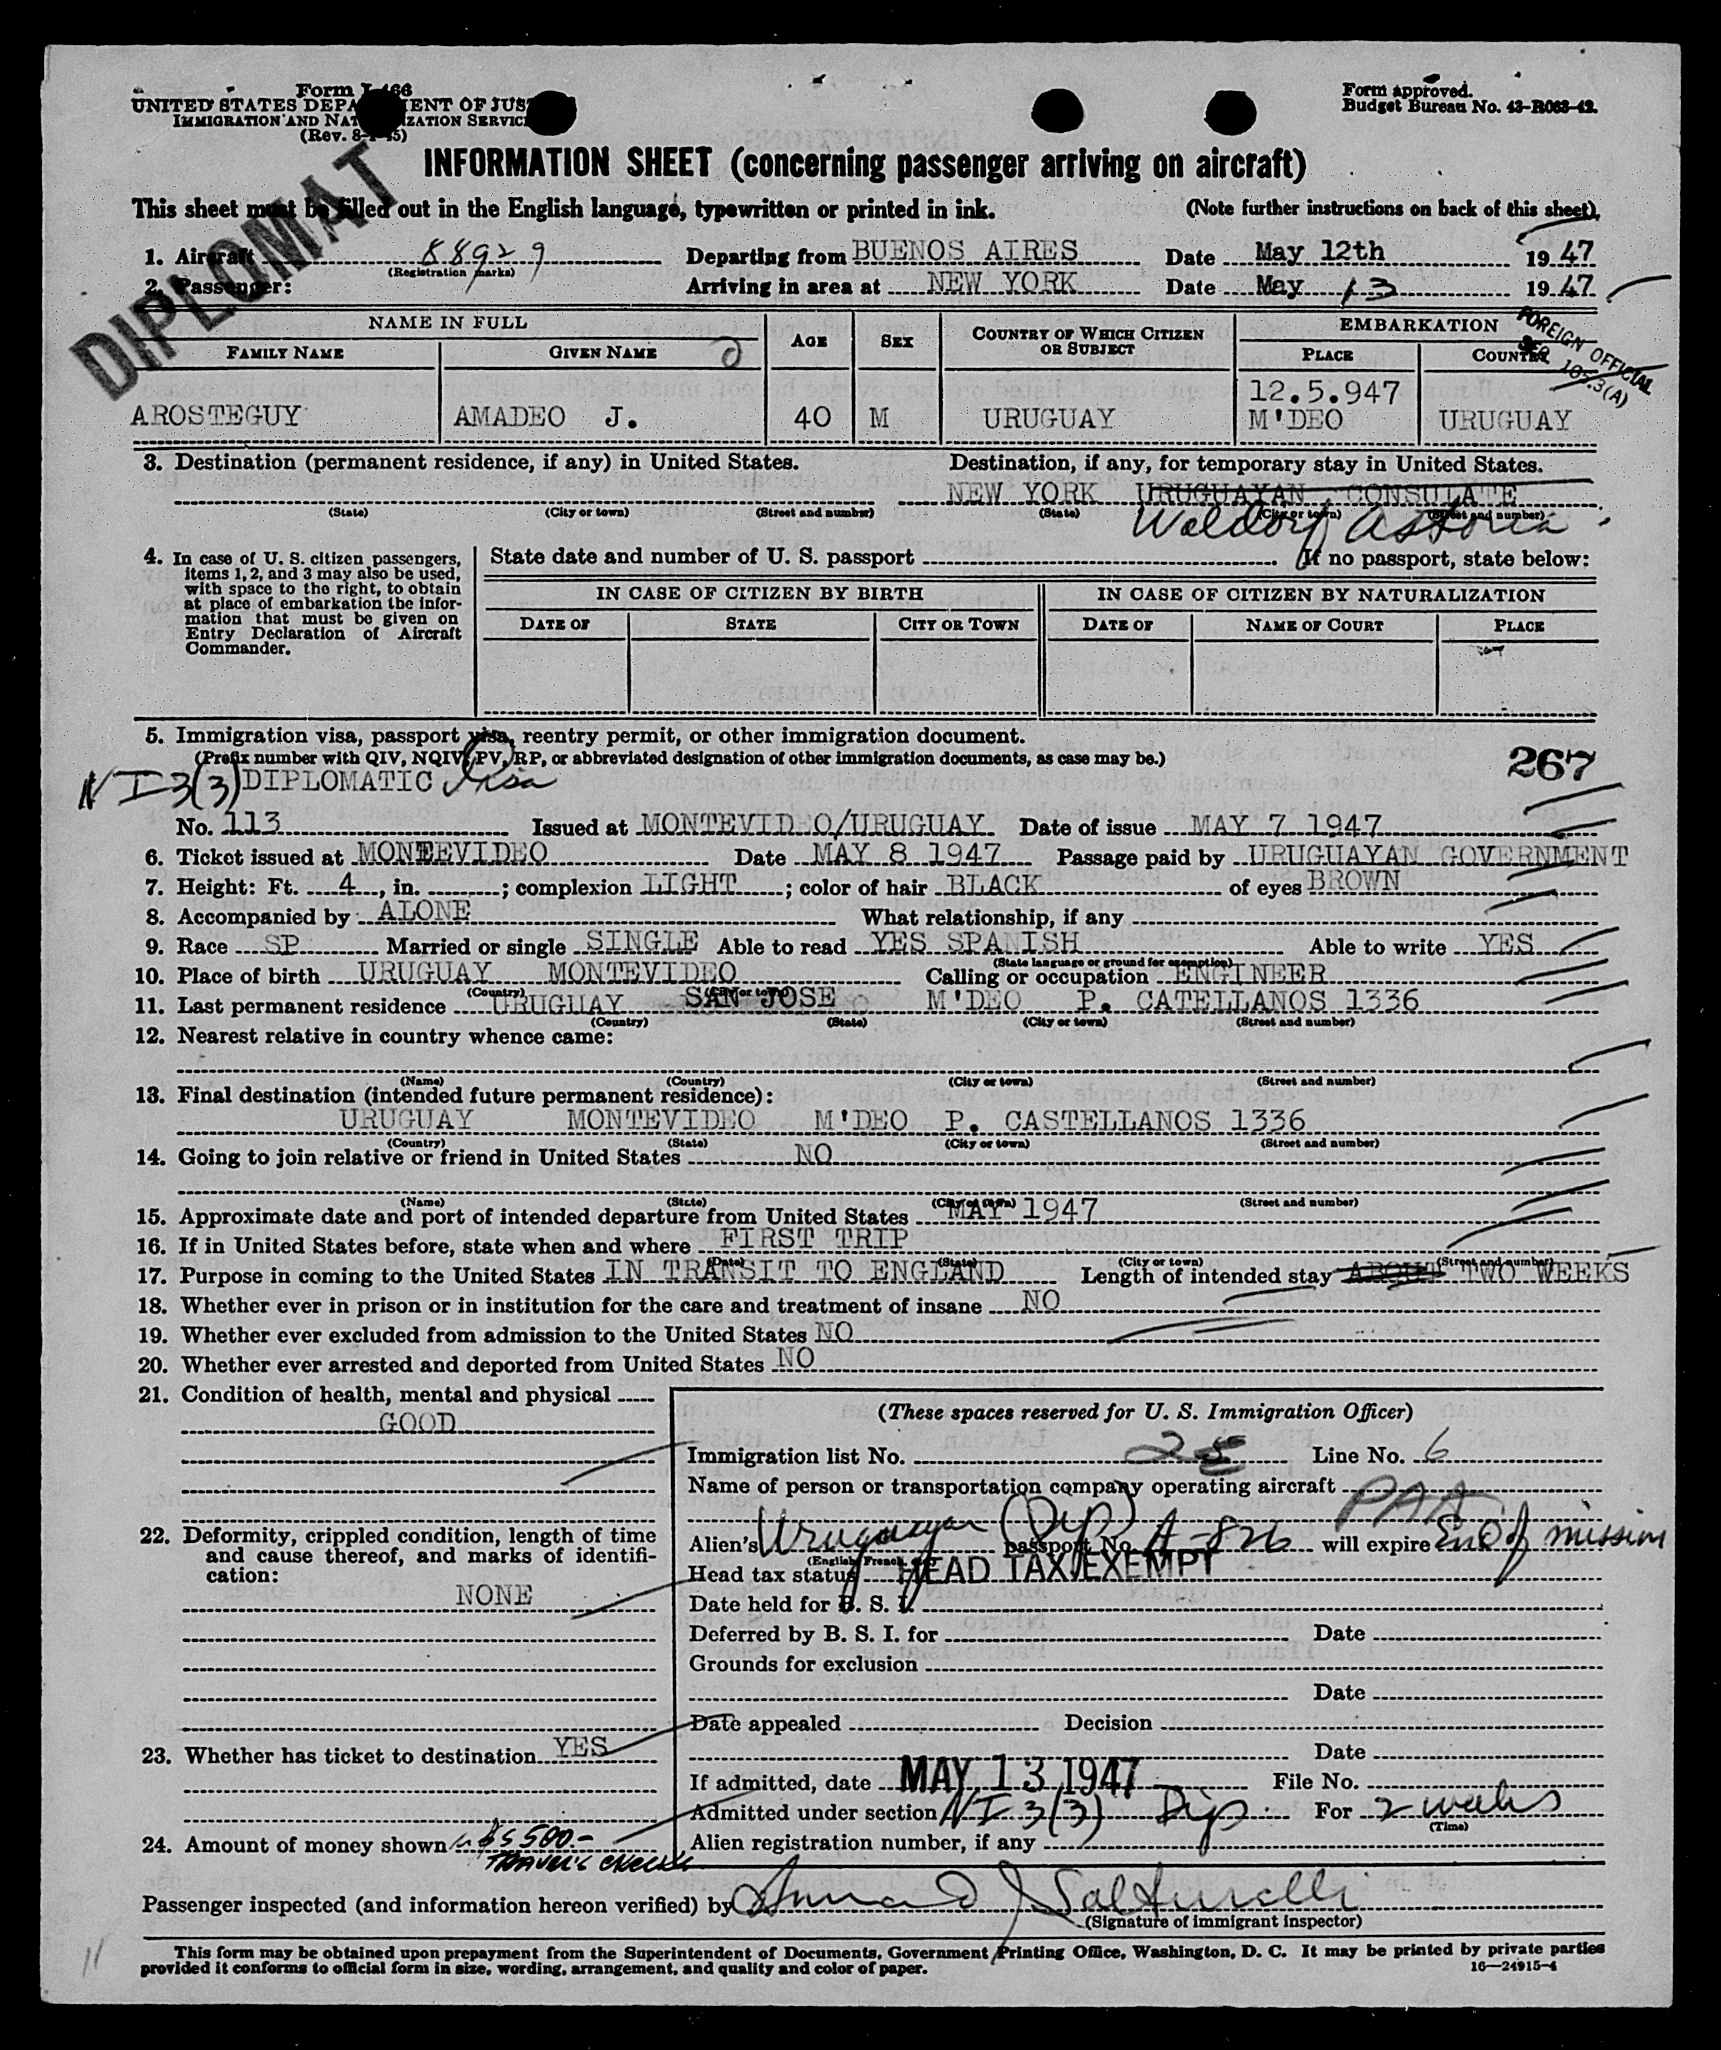 Form I-466
UNITED STATES DEPARTMENT OF JUSTICE
IMMIGRATION AND NATURALIZATION SERVICE
(Rev. 8-1-45)
Form approved.
Budget Bureau No. 43-R063-42.
DIPLOMAT
INFORMATION SHEET (concerning passenger arriving on aircraft)
This sheet must be filled out in the English language, typewritten or printed in ink. (Note further instructions on back of this sheet).
1. Aircraft 88929 Departing from BUENOS AIRES Date May 12th 1947
(Registration marks)
2. Passenger: Arriving in area at NEW YORK Date May 13 1947
FOREIGN OFFICIAL
NAME IN FULL AGE SEX COUNTRY OF WHICH CITIZEN OR SUBJECT EMBARKATION
FAMILY NAME GIVEN NAME PLACE COUNTRY
SEC. 105.3(A)
12.5.947
AROSTEGUY AMADEO J. 40 M URUGUAY M'DEO URUGUAY
3. Destination (permanent residence, if any) in United States. Destination, if any, for temporary stay in United States.
NEW YORK URUGUAYAN CONSULATE
(State) (City or town) (Street and number) (State) (City or town) (Street and number)
Waldorf Astoria
4. In case of U. S. citizen passengers, items 1, 2, and 3 may also be used, with space to the right, to obtain at place of embarkation the information that must be given on Entry Declaration of Aircraft Commander.
State date and number of U. S. passport If no passport, state below:
IN CASE OF CITIZEN BY BIRTH IN CASE OF CITIZEN BY NATURALIZATION
DATE OF STATE CITY OR TOWN DATE OF NAME OF COURT PLACE
5. Immigration visa, passport visa, reentry permit, or other immigration document.
(Prefix number with QIV, NQIV, PV, RP, or abbreviated designation of other immigration documents, as case may be.)
267
NI 3(3) DIPLOMATIC Visa
No. 113 Issued at MONTEVIDEO/URUGUAY Date of issue MAY 7 1947
6. Ticket issued at MONTEVIDEO Date MAY 8 1947 Passage paid by URUGUAYAN GOVERNMENT
7. Height: Ft. 4, in. ; complexion LIGHT ; color of hair BLACK of eyes BROWN
8. Accompanied by ALONE What relationship, if any
9. Race SP Married or single SINGLE Able to read YES SPANISH Able to write YES
(State language or ground for exemption)
10. Place of birth URUGUAY MONTEVIDEO Calling or occupation ENGINEER
(Country) (City or town)
11. Last permanent residence URUGUAY SAN JOSE M'DEO P. CATELLANOS 1336
(Country) (State) (City or town) (Street and number)
12. Nearest relative in country whence came:
(Name) (Country) (City or town) (Street and number)
13. Final destination (intended future permanent residence):
URUGUAY MONTEVIDEO M'DEO P. CASTELLANOS 1336
(Country) (State) (City or town) (Street and number)
14. Going to join relative or friend in United States NO
(Name) (State) (City or town) (Street and number)
15. Approximate date and port of intended departure from United States MAY 1947
16. If in United States before, state when and where FIRST TRIP
(Date) (State) (City or town) (Street and number)
17. Purpose in coming to the United States IN TRANSIT TO ENGLAND Length of intended stay ABOUT TWO WEEKS
18. Whether ever in prison or in institution for the care and treatment of insane NO
19. Whether ever excluded from admission to the United States NO
20. Whether ever arrested and deported from United States NO
21. Condition of health, mental and physical
GOOD
22. Deformity, crippled condition, length of time and cause thereof, and marks of identification:
NONE
23. Whether has ticket to destination YES
24. Amount of money shown $ 500.-
(These spaces reserved for U. S. Immigration Officer)
Immigration list No. 25 Line No. 6
Name of person or transportation company operating aircraft PAA
Alien's Uruguayan (Dip) passport No. A-826 will expire End of mission
Head tax status HEAD TAX EXEMPT
Date held for B. S. I.
Deferred by B. S. I. for Date
Grounds for exclusion
Date
Date appealed Decision
Date
If admitted, date MAY 13 1947 File No.
Admitted under section NI 3(3) Dip. For 2 weeks
(Time)
Alien registration number, if any
Passenger inspected (and information hereon verified) by
(Signature of immigrant inspector)
This form may be obtained upon prepayment from the Superintendent of Documents, Government Printing Office, Washington, D. C. It may be printed by private parties
provided it conforms to official form in size, wording, arrangement, and quality and color of paper.
16—24915-4
11